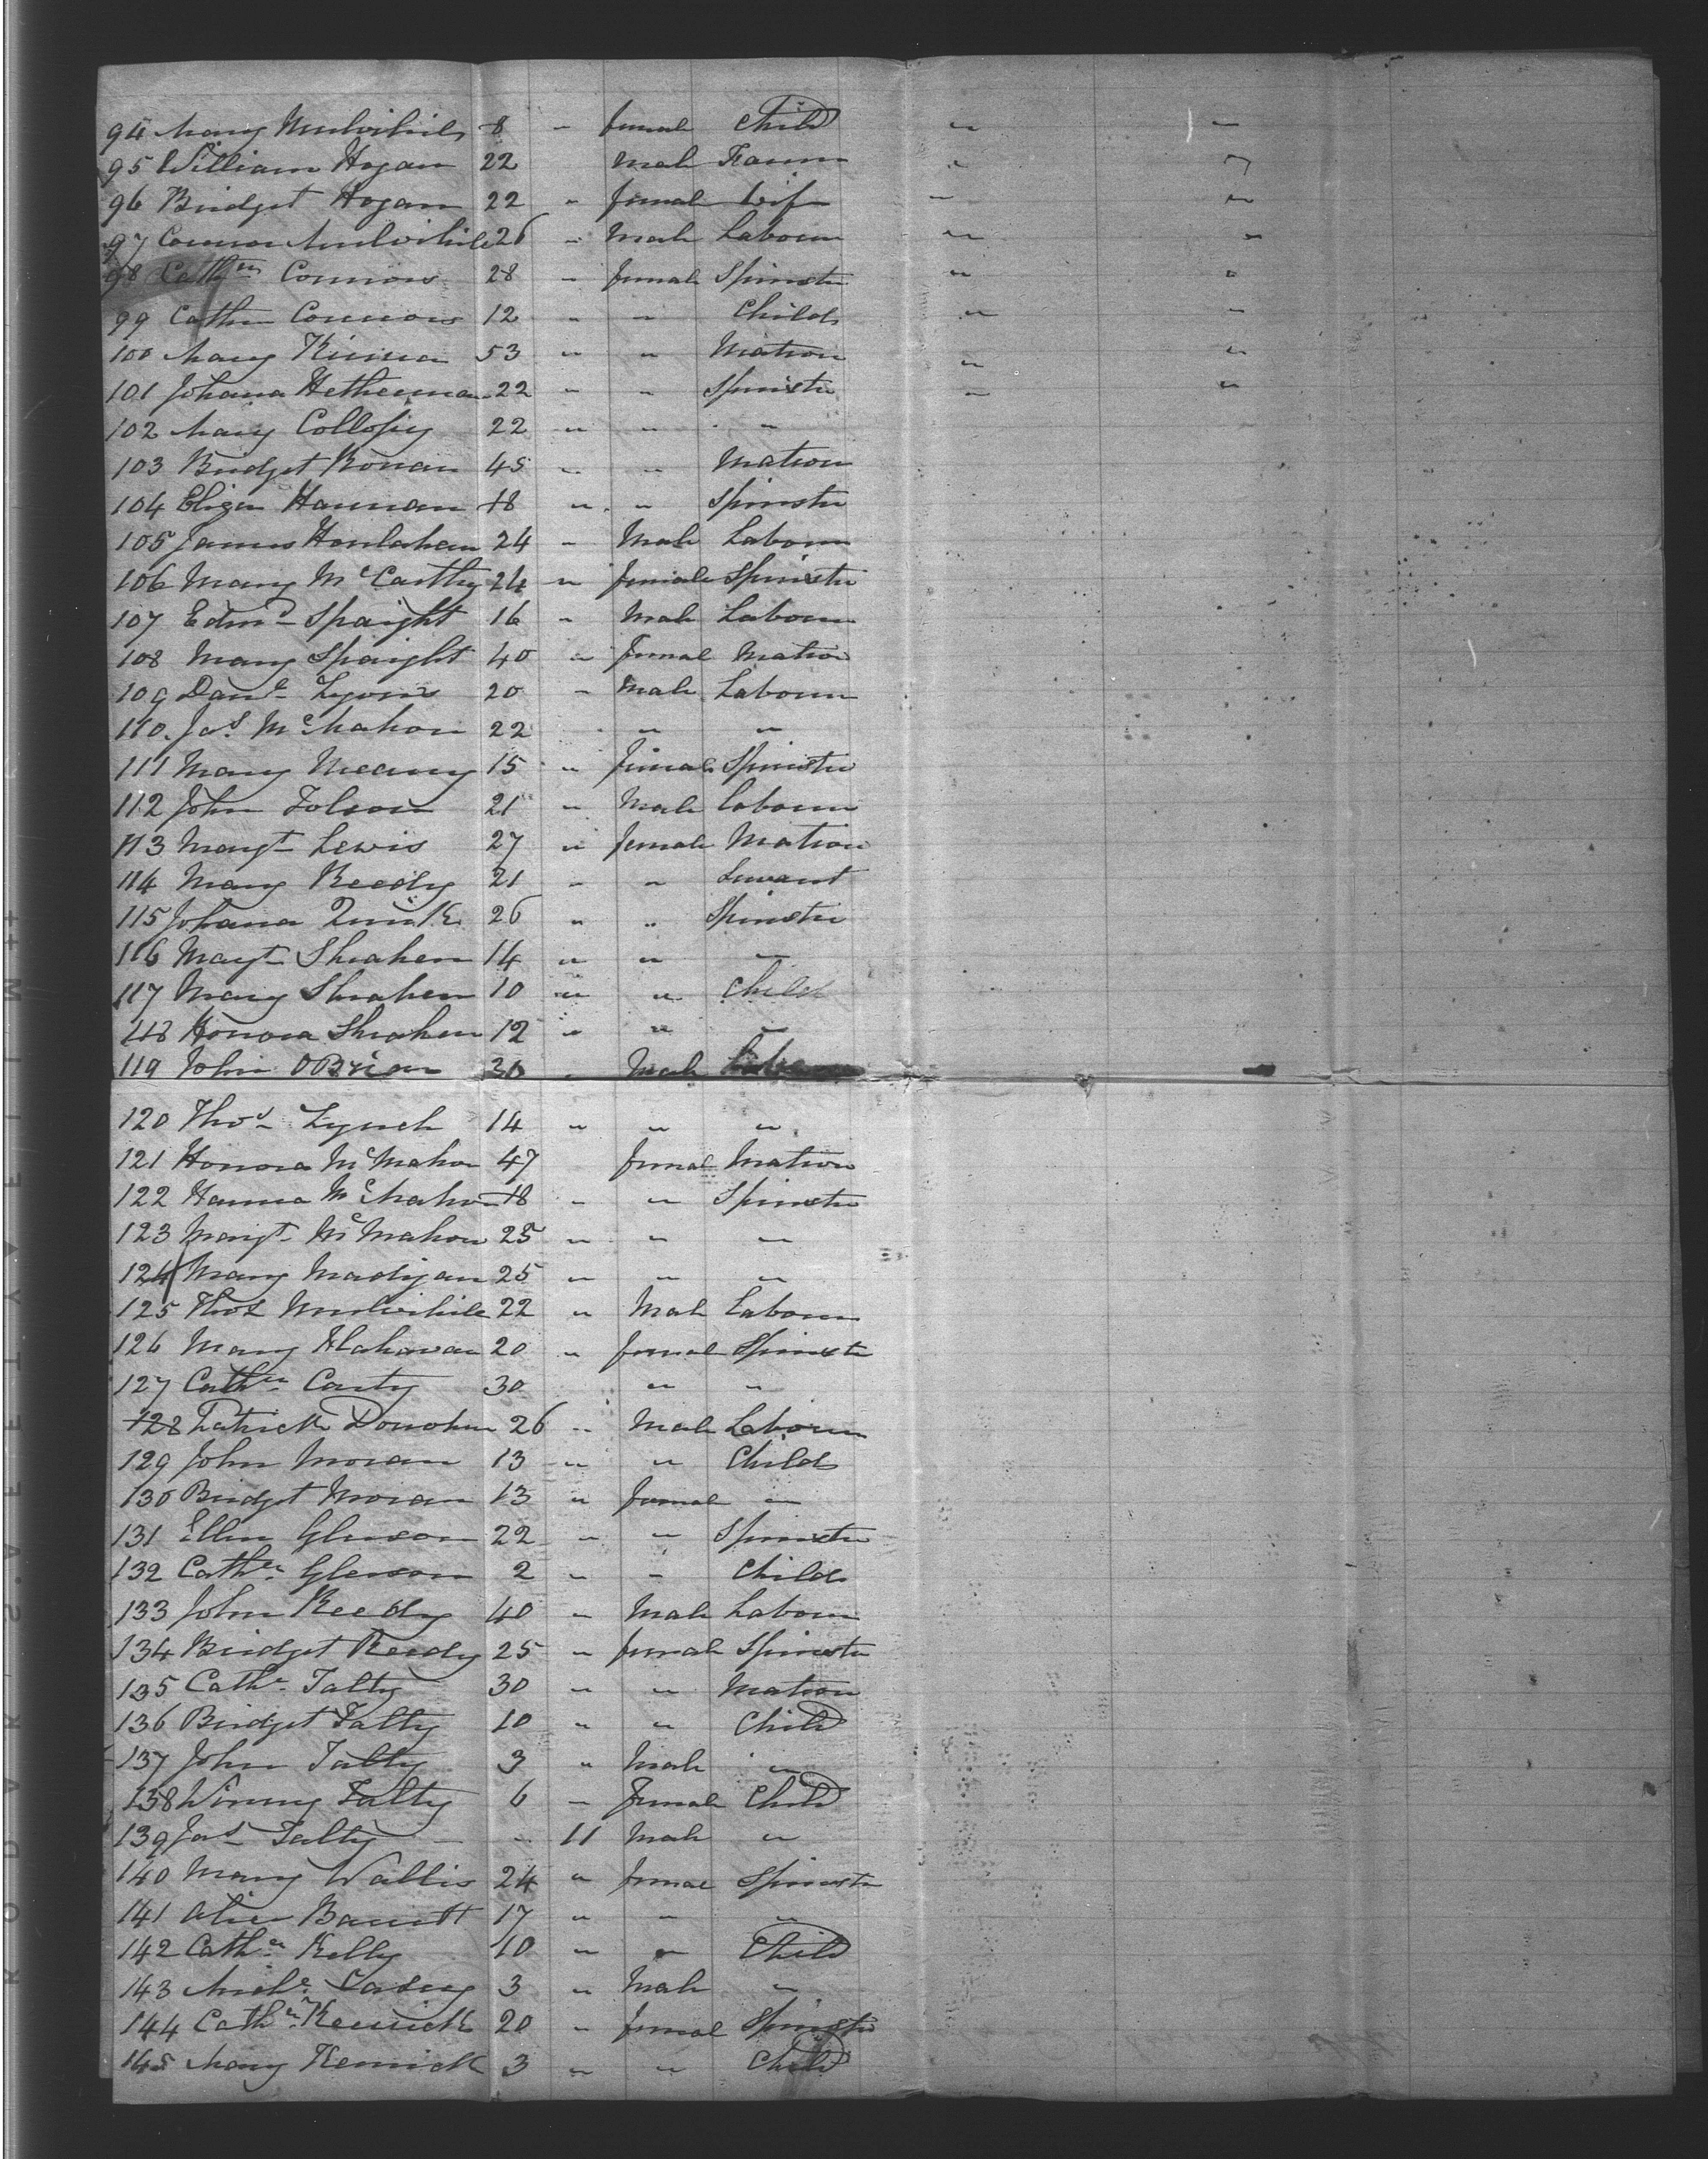 94 Mary Mulvihil 8 " female Child " "
95 William Hogan 22 male Farmr " "
96 Bridget Hogan 22 " female wife " "
97 Connor Mulvihile 26 " Male Labourr " "
98 Cathn Connors 28 " female Spinster " "
99 Cathn Connors 12 " " Child " "
100 Mary 53 " " Matron " "
101 Johana Hetherman 22 " " Spinster " "
102 Mary Collopy 22 " " "
103 Bridget Ronan 45 " " Matron
104 Eliza Hannan 18 " " Spinster
105 James Honlahan 24 " Male Labourr
106 Mary McCarthy 24 " female Spinster
107 Edmd Spaight 16 " Male Labourr
108 Mary Spaight 40 " female Matron
109 Danl Lyons 20 " Male Labourr
110 Jas McMahon 22 " " "
111 Mary Meany 15 " female Spinster
112 John 21 " Male Labourr
113 Margt Lewis 27 " female Matron
114 Mary Reedy 21 " " Servant
115 Johana Quirk 26 " " Spinster
116 Margt Sheahen 14 " " "
117 Mary Sheahen 10 " " Child
118 Honora Sheahen 12 " " "
119 John OBrien 30 " Male Labourr
120 Thos Lynch 14 " " "
121 Honora McMahon 47 female Matron
122 Hanna McMahon 18 " " Spinster
123 Margt McMahon 25 " " "
124 Mary Madigan 25 " " "
125 Thos Mulvihile 22 " Male Labourr
126 Mary 20 " female Spinster
127 Cathn Carty 30 " "
128 Patrick Donohue 26 " Male Labourr
129 John Moran 13 " " Child
130 Bridget Moran 13 " female "
131 Ellen Gleeson 22 " " Spinster
132 Cathn Gleeson 2 " " Child
133 John Reedy 40 " Male Labourr
134 Bridget Reedy 25 " female Spinster
135 Cathn Talty 30 " " Matron
136 Bridget Talty 10 " " Child
137 John Talty 3 " Male "
138 Winny Talty 6 " female Child
139 Jas Talty " 11 Male "
140 Mary Wallis 24 " female Spinster
141 Alice Barrett 17 " " "
142 Cathn Kelly 10 " " Child
143 Michl 3 " Male "
144 Cathn Rennick 20 " female Spinster
145 Mary Rennick 3 " " Child